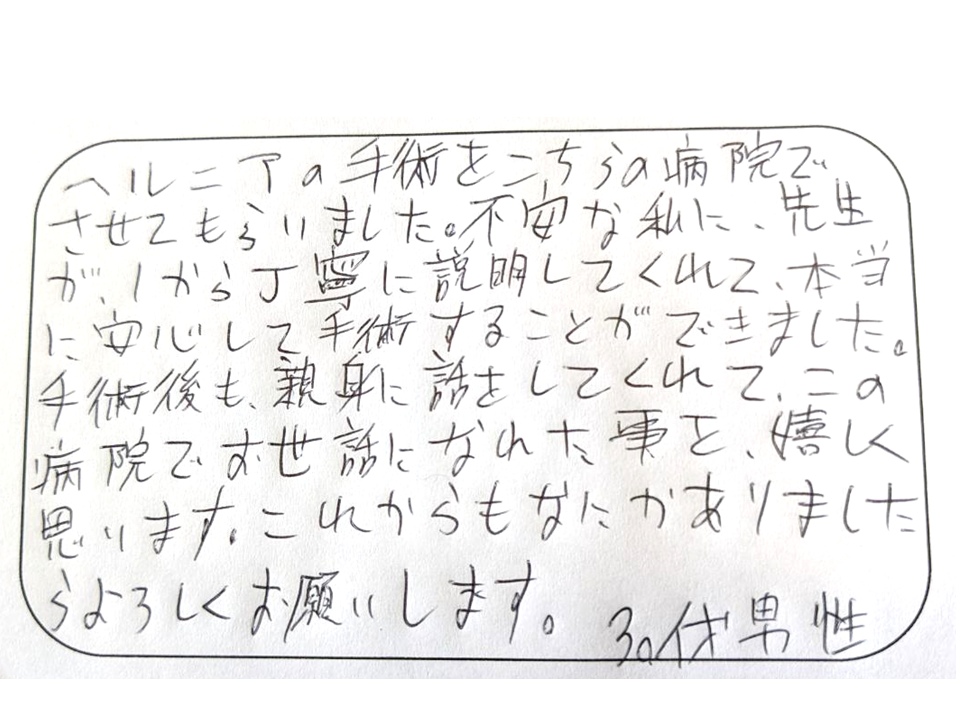 ヘルニアの手術をこちらの病院で
させてもらいました。不安な私に、先生
が、1から丁寧に説明してくれて、本当
に安心して手術することができました。
手術後も、親身に話をしてくれて、この
病院でお世話になれた事を、嬉しく
思います。これからもなにかありました
らよろしくお願いします。
30代男性